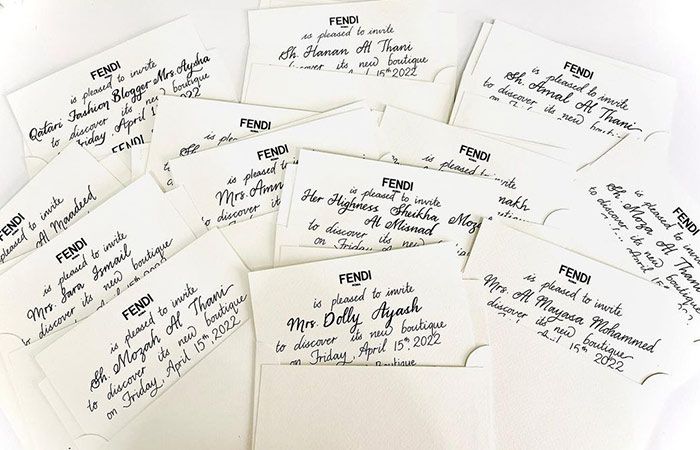 FENDI
ROMA
is pleased to invite
Qatari Fashion Blogger Mrs. Aysha
to discover its new boutique
Friday, April
FENDI
FENDI
ROMA
is pleased to invite
Sh. Hanan Al Thani
discover its new boutique
April 15th 2022
FENDI
ROMA
is pleased to invite
Sh. Amal Al Thani
to discover its new
FENDI
is pleased to
Sh.
FENDI
is pleased
Mrs. Amn
to discover
on Friday
FENDI
is pleased to invite
FENDI
ROMA
is pleased to invite
Her Highness Sheikha Moza
Al Misnad
to discover its new boutique
on Friday, April
is pleased to invite
Sh. Moza Al Thani
to discover its new
April 15th 2022
FENDI
is pleased to invite
Al Maadeed
FENDI
ROMA
is pleased to invite
Mrs. Sara Ismail
to discover its new boutique
15th 2022
FENDI
ROMA
is pleased to invite
Sh. Mozah Al Thani
to discover its new boutique
on Friday, April 15th, 2022
FENDI
ROMA
is pleased to invite
Mrs. Dolly Ayash
to discover its new boutique
on Friday, April 15th 2022
FENDI
ROMA
is pleased to invite
Mrs. Al Mayasa Mohammed
to discover its new boutique
15th 2022